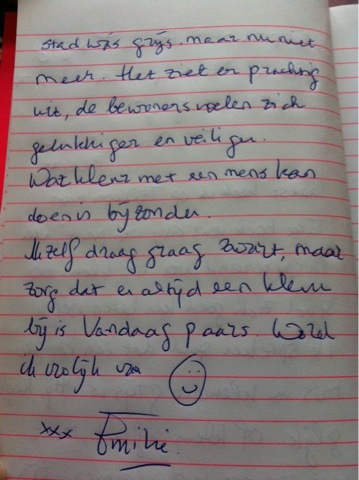 stad was grijs. maar nu niet
meer. Het ziet er prachtig
uit, de bewoners voelen zich
gelukkiger en veiliger.
Wat kleur met een mens kan
doen is bijzonder.
Mezelf draag graag zwart, maar
zorg dat er altijd een kleur
bij is Vandaag paars. Word
ik vrolijk van
xxx Emilie.